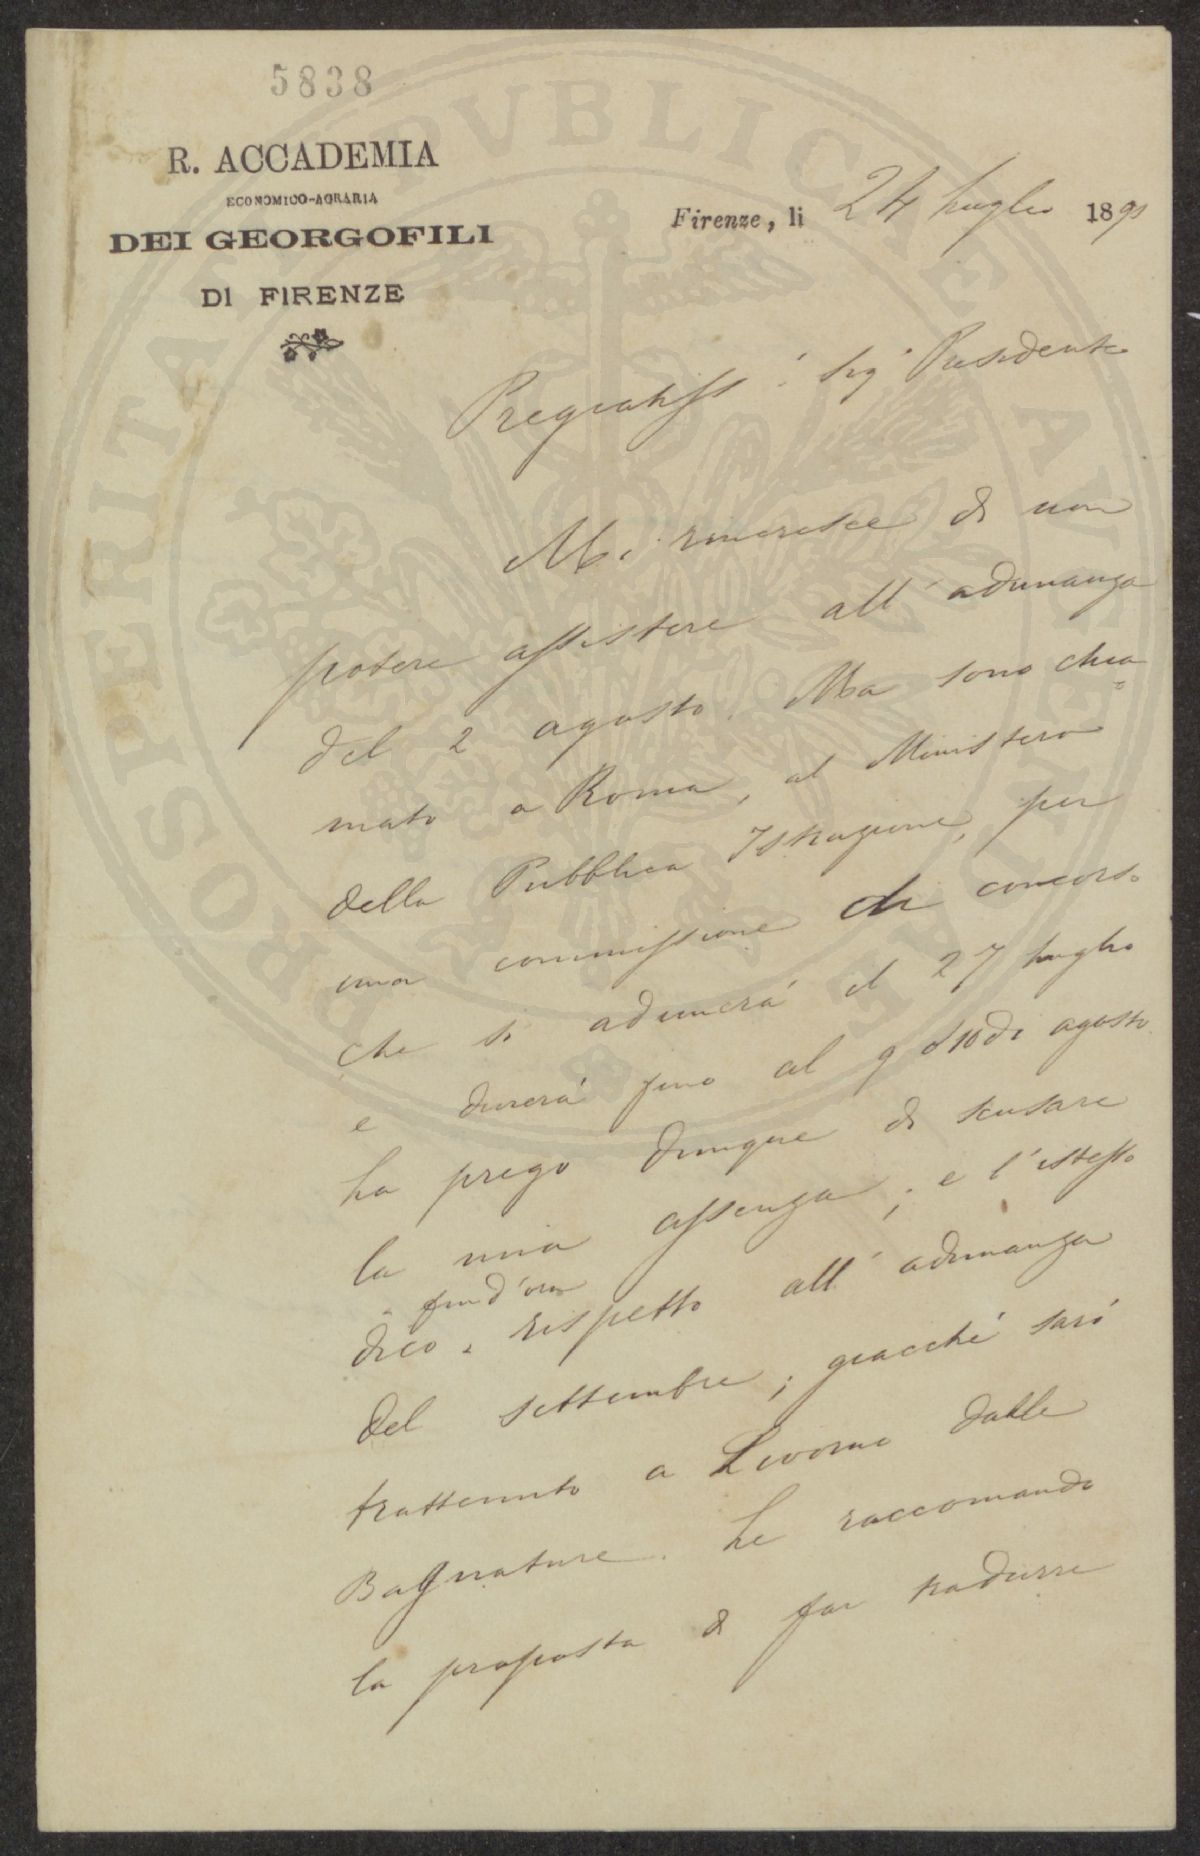 5838
R. ACCADEMIA
ECONOMICO-AGRARIA
DEI GEORGOFILI
DI FIRENZE
Firenze, li 24 luglio 1890
PROSPERITATI PVBLICAE AVGENDAE
Pregiatiss. Sig Presidente
Mi rincresce di non
potere assistere all'adunanza
del 2 agosto. Ma sono chia
mato a Roma, al Ministero
della Pubblica Istruzione, per
una commissione di concorso
che si adunerà il 27 luglio
e durerà fino al 9 o 10 di agosto.
La prego dunque di scusare
la mia assenza; e l'istesso
fin d'ora
dico rispetto all'adunanza
del settembre; giacchè sarò
trattenuto a Livorno dalle
Bagnature. Le raccomando
la proposta di far tradurre